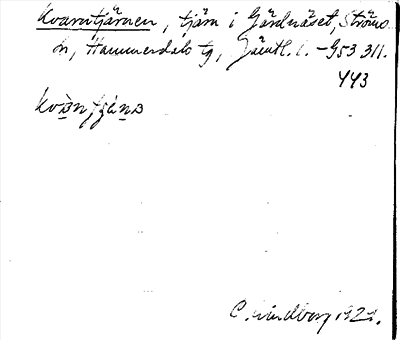 Kvarntjärnen, tjärn i Gärdnäset, Ströms
sn, Hammerdals tg, Jämtl. l. – 953 311.
443
C. Lindberg 1921.